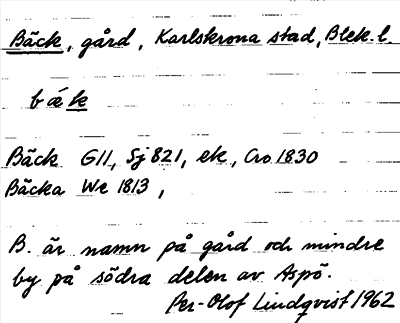 Bäck, gård, Karlskrona stad, Blek. l.
bǽk
Bäck G11, Sj 821, ek, Cro 1830
Bäcka We 1813,
B. är namn på gård och mindre
by på södra delen av Aspö.
Per-Olof Lindqvist 1962